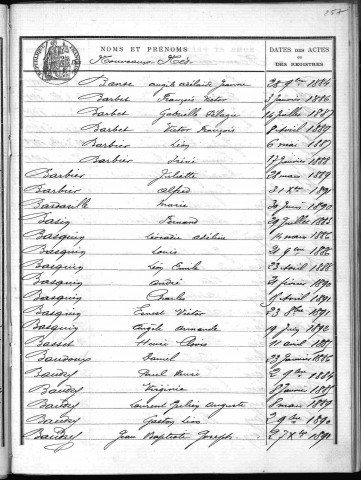 152
NOMS ET PRÉNOMS
DATES DES ACTES
OU
DES REGISTRES
Nouveaux-Nés
Banse angèle adélaïde Jeanne 28 9bre 1884
Barbet François Victor 3 Janvier 1886
Barbet Gabrielle Pélagie 14 Juillet 1887
Barbet Victor François 8 avril 1889
Barbier Léon 6 mai 1887
Barbier Irène 17 Janvier 1888
Barbier Juliette 28 mars 1889
Barbier alfred 21 Xbre 1891
marie 20 Juin 1890
Basin Fernand 29 Juillet 1883
Basquin Léocadie adéline 14 mars 1886
Basquin Louis 21 9bre 1886
Basquin Léon Emile 23 avril 1888
Basquin andré 21 février 1890
Basquin Charles 9 avril 1891
Basquin Ernest Victor 23 8bre 1891
Basquin angèle armande 19 July 1892
Basset Henri Clovis 11 avril 1887
Baudoux Daniel 23 Janvier 1886
Baudry Paul Henri 2 9bre 1884
Baudry Virginie Janvier 1887
Baudry Laurent Julien Auguste 8 mars 1889
Baudry Gaston Léon 2 9bre 1890
Baudry Jean Baptiste Joseph 27 Xbre 1890